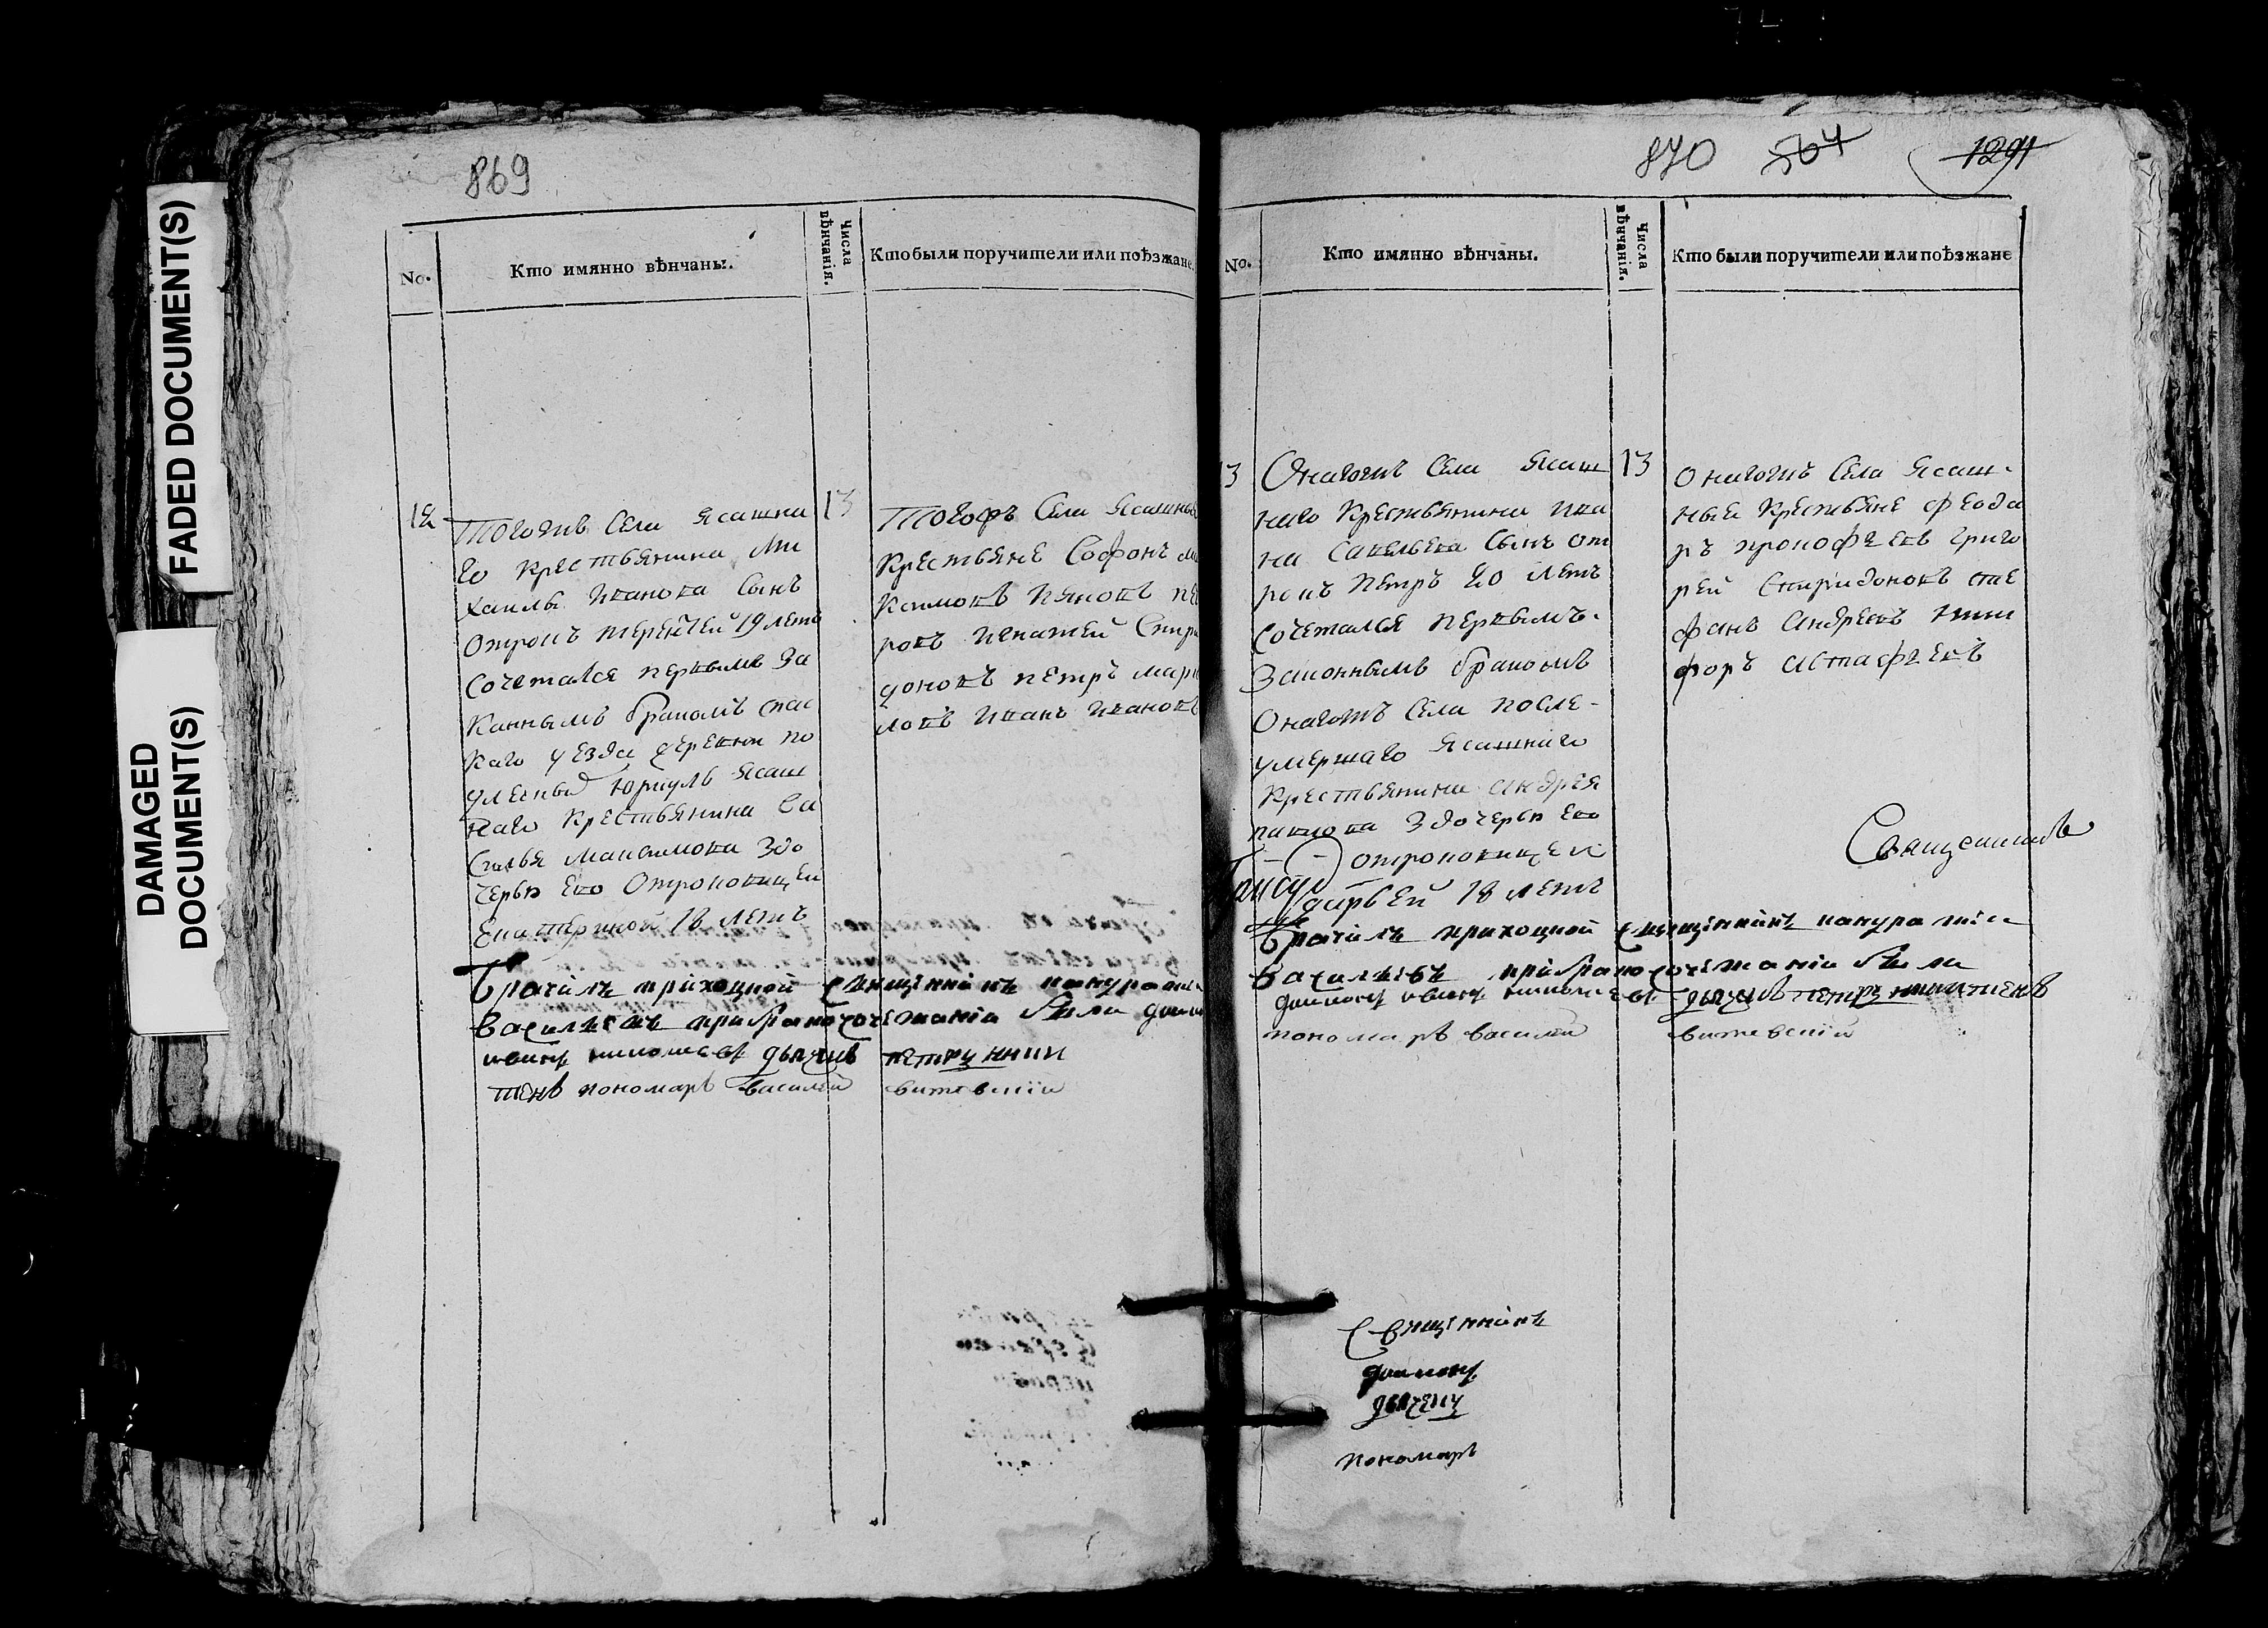 FADED DOCUMENT(S)
DAMAGED
DOCUMENT(S)
869
No.
Кто имянно вѣнчаны.
Числа
вѣнчанія.
Кто были поручители или поѣзжане.
12
Тогожъ Села Ясашна
го крестьянина Ми
хаилы Иванова Сынъ
Отрокъ Терентей 19 летъ
Сочетался первымъ За
коннымъ бракомъ Спас
каго уезда деревни По
Юркуль Ясаш
наго крестьянина Ва
силья Максимова Здо
черью Ево Отроковицей
Екатериной 18 летъ
13
Тогожъ Села Ясашныя
крестьяне Софонъ Ма
ксимовъ
ровъ Игнатей Спири
доновъ Петръ Мар
Иванъ Ивановъ
Брачилъ приходной священникъ
Василiевъ при бракосочетанiи были
дьячекъ Петръ Ники
тинъ пономарь Василей
870 564 1291
No.
Кто имянно вѣнчаны.
Числа
вѣнчанія.
Кто были поручители или поѣзжане
3
Онагожъ Села Ясаш
наго Крестьянина Ива
на Савельева Сынъ от
рокъ Петръ 20 летъ
Сочетался первымъ
Законнымъ бракомъ
Онагожъ Села после
умершаго Ясашнаго
Крестьянина Андрея
Павлова Здочерью Ево
отроковицей
Дарьей 18 летъ
13
Онагожъ Села Ясаш
ныя Крестьяне Феодо
ръ Прокофьевъ Григо
рей Спиридоновъ Сте
фанъ Андреевъ Ники
форъ Астафьевъ
Священникъ
Брачилъ приходной священникъ
Василiевъ при бракосочетанiи были
Петръ Никитинъ
пономарь Василей
Священникъ
дьячекъ
пономарь